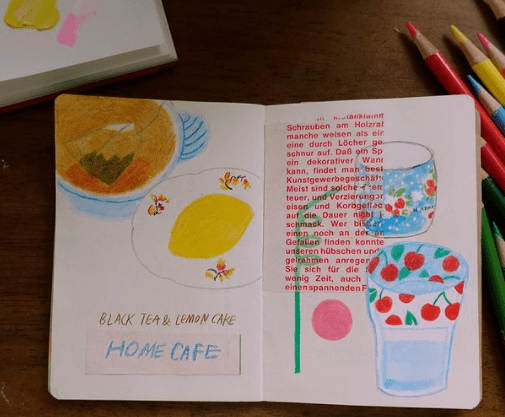 BLACK TEA & LEMON CAKE
HOME CAFE
Schrauben am Holzrah
manche weisen als ein
eine durch Löcher ge
schnur auf. Daß ein Sp
ein dekorativer Wand
kann, findet man best
Kunstgewerbegeschäft
Meist sind solche
teuer, und Verzierungen
eisen und Korbgeflec
auf die Dauer nicht
schmack. Wer bis
einen noch an der an
Gefallen finden konnte
unseren hübschen und
gelrahmen anregen
Sie sich für die
wenig Zeit, auch
einen spannenden F